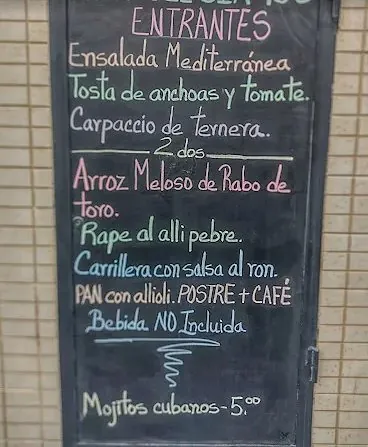 ENTRANTES
Ensalada Mediterránea
Tosta de anchoas y tomate.
Carpaccio de ternera.
2 dos
Arroz Meloso de Rabo de
toro.
Rape al alli pebre.
Carrillera con salsa al ron.
PAN con allioli. POSTRE + CAFÉ
Bebida NO Incluida
Mojitos cubanos-5.00